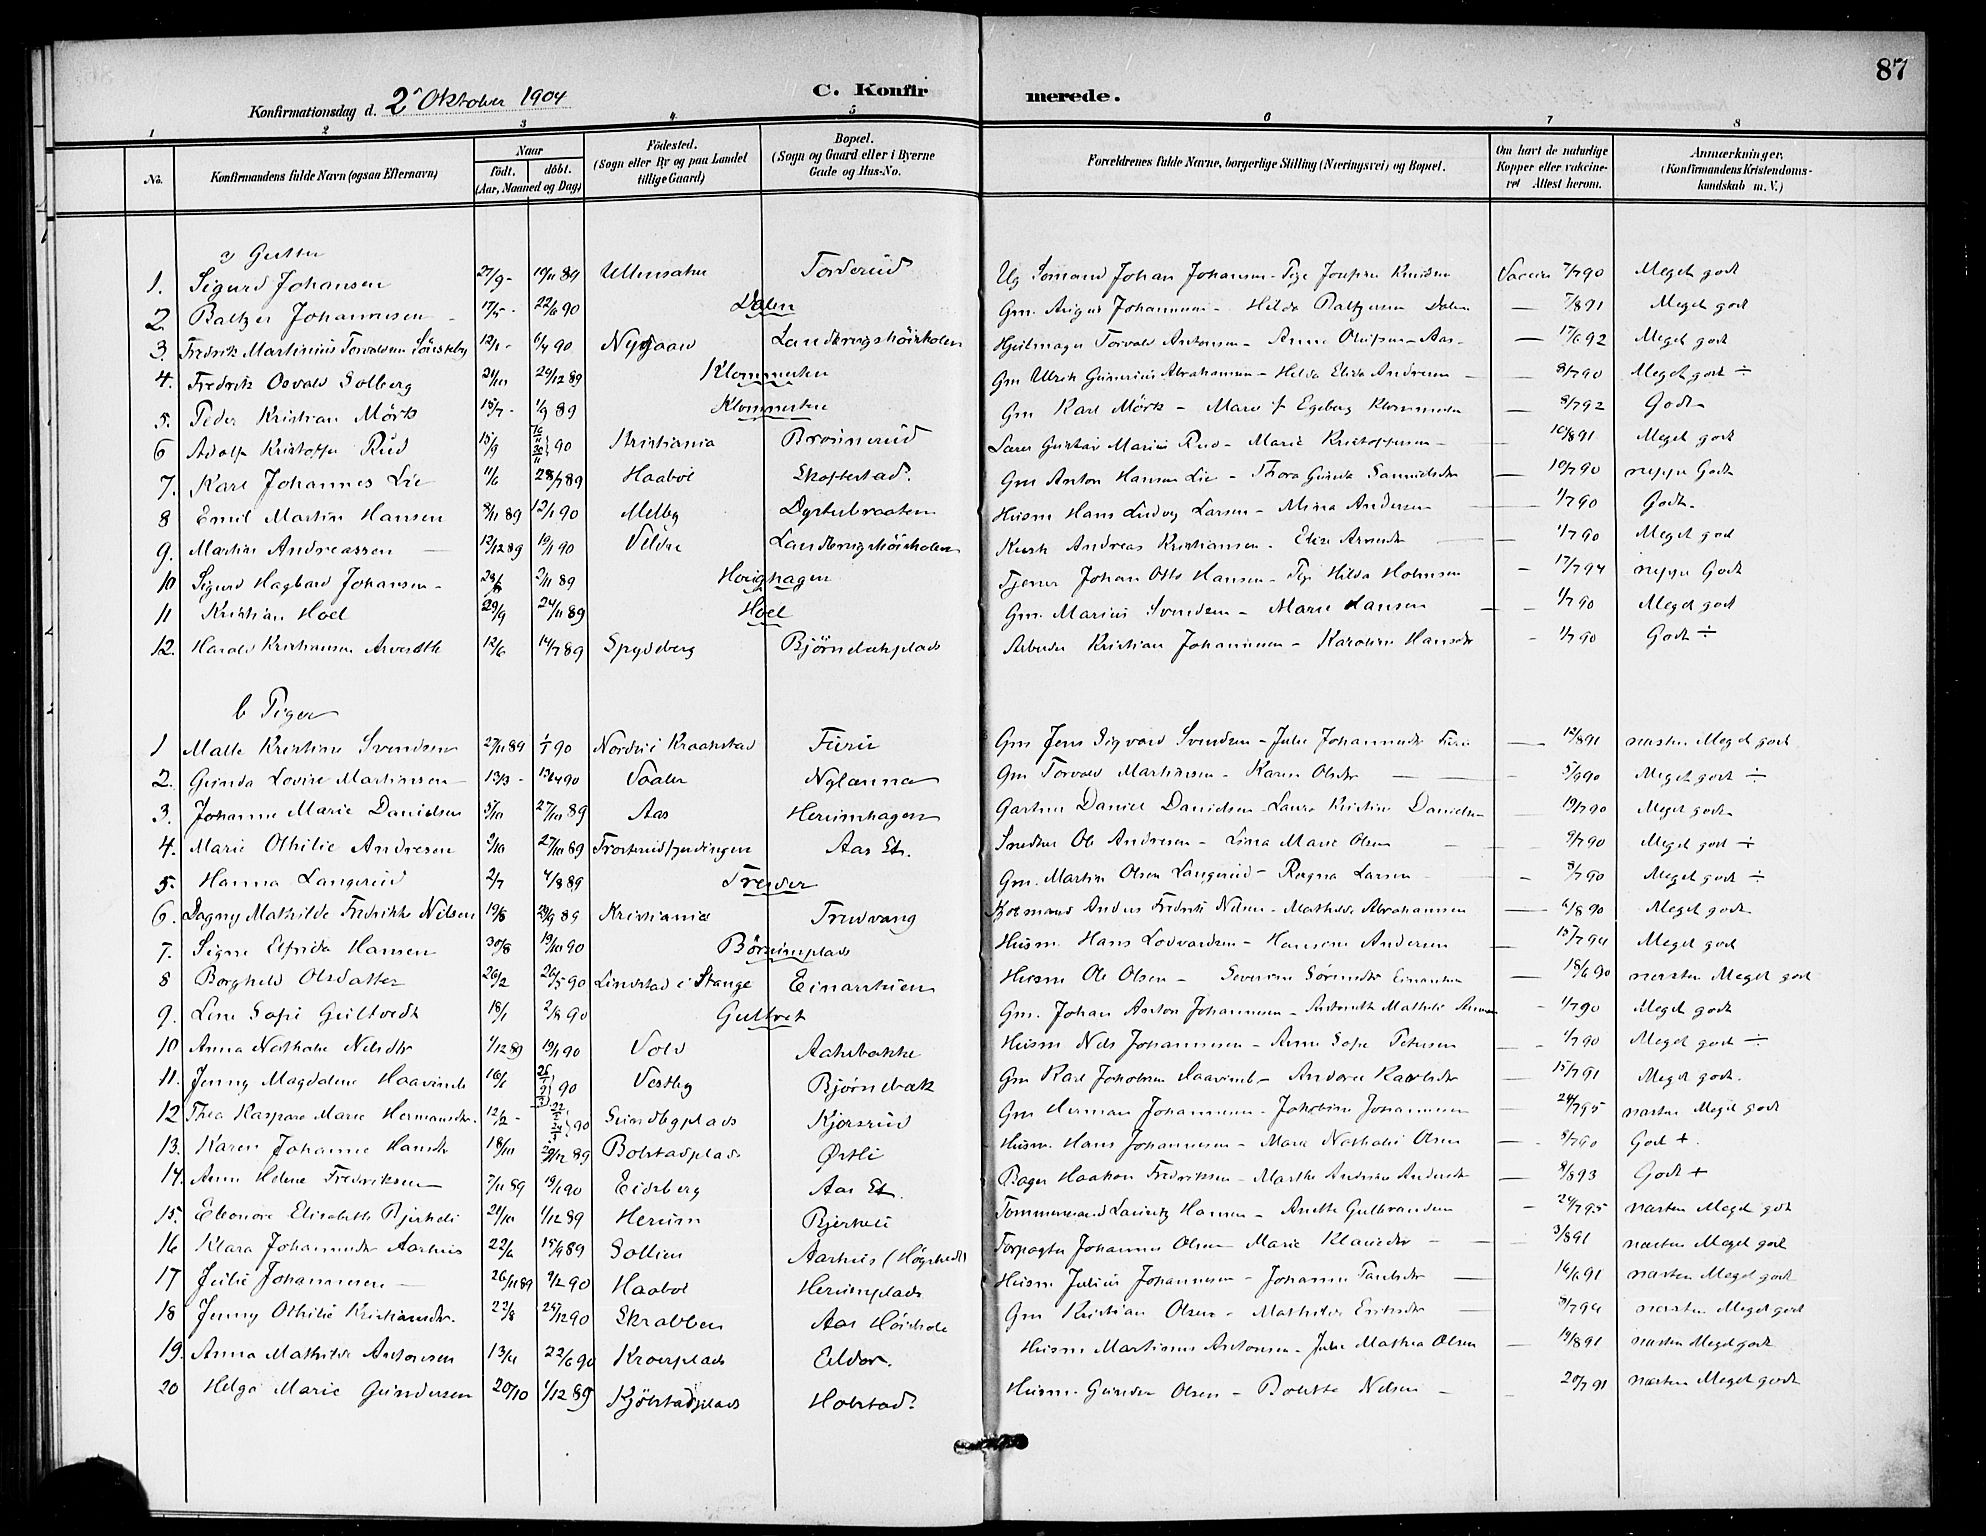 87
Konfirmationsdag d. 2 Oktober 1904 C. Konfirmerede.
1 2 3 4 5 6 7 8
No. Konfirmandens fulde Navn (ogsaa Efternavn) Naar født. døbt. (Aar, Maaned og Dag) Fødested. (Sogn eller By og paa Landet tillige Gaard) Bopæl. (Sogn og Gaard eller i Byerne Gade og Hus-No. Forældrenes fulde Navne, borgerlige Stilling (Næringsvei) og Bopæl. Om havt de naturlige Kopper eller vakcineret Attest herom. Anmærkninger. (Konfirmandens Kristendomskundskab m. V.)
a) Gutter
1. Sigurd Johansen 27/9 - 19/11 89 Ullensaker Johan Johansen - Pige Josefine Knudsen Vaccin 7/7 90 Meget godt
2. Baltzer Johannesen 17/5 - 22/6 90 Dalen Gm. Johannesen - Hilda Baltzersen Dalen — 7/8 91 Meget godt
3. Fredrik Martinius Torvaldsen 12/1 - 6/4 90 Nygaard Landbrugshöiskolen Hjulmager Torvald Antonsen - Anne Olufsen - Aas — 17/6 92 Meget godt
4. Fredrik Osvald Solberg 21/10 29/12 89 Klommesten Gm Ulrik Gunerius Abrahamsen - Hilda Elida Andresen — 8/7 90 Meget godt ÷
5. Peder Kristian Mörk 15/7 - 1/9 89 Klommesten Gm Karl Mörk - Marie f. Egeberg Klommesten — 8/7 92 Godt
6 Adolf Kristoffer Rud 15/9 90 Kristiania Brönnerud Lærer Gustav Marius Rud - Marie Kristoffersen — 10/8 91 Meget godt
7. Karl Johannes Lie 11/6 28/7 89 Haaböl Skoftestad. Gm Anton Hansen Lie - Thora Gunda Samuelsdtr — 10/7 90 neppe Godt
8 Emil Martin Hansen 8/11 89 12/1 90 Melby Dysterbraaten Husm Hans Ludvig Larsen - Mina Andersen — 1/7 90 Godt.
9. Martin Andreassen 12/12 89 19/1 90 Veldre Landbrugshöiskolen Kusk Andreas Kristiansen - Elise — 1/7 90 Meget god
10 Sigurd Hagbard Johansen 2/11 89 Houghagen Tjener Johan Otto Hansen - Pige Hilda Holmsen - 17/7 94 neppe Godt
11 Kristian Hoel 29/9 24/11 89 Hoel Gm. Marius Svendsen - Marie Hansen — 1/7 90 Meget godt
12. Harald Kristiansen 12/6 14/7 89 Spydeberg Björnebækplads Arbeider Kristian Johannesen - Karoline Hansdtr - 1/7 90 Godt ÷
b Piger
1 Malle Kristine Svendsen 27/11 89 1/1 90 Nordre i Kraakstad Furu Gm Jens Sigvard Svendsen - Julie Johannesdtr Furu — 12/8 91 næsten Meget godt
2. Gunda Lovise Martinsen 13/3 - 13/4 90 Vaaler Nylænna Gm Torvald Martinsen - Karen Olsdtr — 5/9 90 Meget godt ÷
3. Johanne Marie Danielsen 5/10 27/10 89 Aas Herumhagen Gartner Daniel Danielsen - Laura Kristine Danielsen — 19/7 90 Meget godt
4. Marie Othilie Andresen 3/10 27/10 89 Froskerudfjerdingen Aas St. Snedker Ole Andresen - Lina Marie Olsen — 9/7 90 Meget god ÷
5. Hanna Langerud 2/7 4/8 89 Treider Gm. Martin Olsen Langerud - Ragna Larsen - 8/7 90 Meget godt ÷
6. Dagny Mathilde Fredrikke Nilsen 19/8 29/9 89 Kristiania Trudvang Anders Fredrik Nilsen - Mathilde Abrahamsen — 6/8 90 Meget godt
7. Signe Elfrida Hansen 30/8 19/10 90 Börsumplads Husm. Hans Lodvardsen - Hansine Andersen — 15/7 94 Meget god
8 Borghild Olsdatter 26/2 26/5 90 Lindstad i Stange Einarskien Husm Ole Olsen - Severine Sörensdtr Einarskien — 18/6 90 næsten Meget godt
9. Lina Sofie Gultvedt 18/1 2/8 90 Gultvet Gm. Johan Anton Johannesen - Antonette Mathilde - 1/7 90 Meget godt
10 Anna Nathalie Nilsdtr 1/12 89 19/1 90 Vold Aaksbakke Husm Nils Johannesen - Anne Sofie Petersen - 1/7 90 Meget godt ÷
11. Jenny Magdalene Haavimb 16/1 90 Vestby Björnebæk Gm Karl Jakobsen Haavimb - Andora Karlsdtr - 15/7 91 Meget godt.
12 Thea Kaspara Marie Hermansdtr. 12/2 - 90 Sundbyplads Kjærsrud Gm Herman Johannesen - Jakobine Johannesen — 24/7 95 næsten Meget godt
13. Karen Johanne Hansdtr 18/10 29/12 89 Bolstadplads Østli Husm. Hans Johannesen - Maria Nathalie Olsen — 8/7 90 God +.
14. Anna Helene Fredriksen 7/11 89 19/1 90 Eidsberg Aas St. Bager Haakon Fredriksen - Marthe Andrine Andersdtr — 8/8 93 Godt +
15. Eleonore Elisabeth Bjerkeli 21/10 1/12 89 Herum Bjerkeli Tömmermand Lauritz Hansen - Anette Gulbrandsen - 24/7 95 næsten Meget godt
16 Klara Johannesdtr Aarhus 22/6 15/9 89 Sollien Aarhus (Høgskole) Forpagter Johannes Olsen - Marie Klausdtr - 3/8 91 næsten Meget godt
17 Julie Johannesen 26/11 89 9/2 90 Haaböl Herumplads Husm Julius Johannesen - Johanne Paulsdtr — 16/6 91 næsten Meget godt
18 Jenny Othilie Kristiansdtr. 22/8 26/12 90 Skrabben Aas Höiskole Gm Kristian Olsen - Mathilde Eriksdtr — 8/7 94 næsten Meget godt
19. Anna Mathilde Antonsen 13/4 22/6 90 Kroerplads Eldor. Husm Martinus Antonsen - Julie Mathea Olsen — 19/8 91 næsten Meget godt
20 Helga Marie Gundersen 20/10 1/12 89 Kjölstadplads Holstad. Husm. Gunder Olsen - Bolette Nilsen - 20/7 91 næsten Meget godt